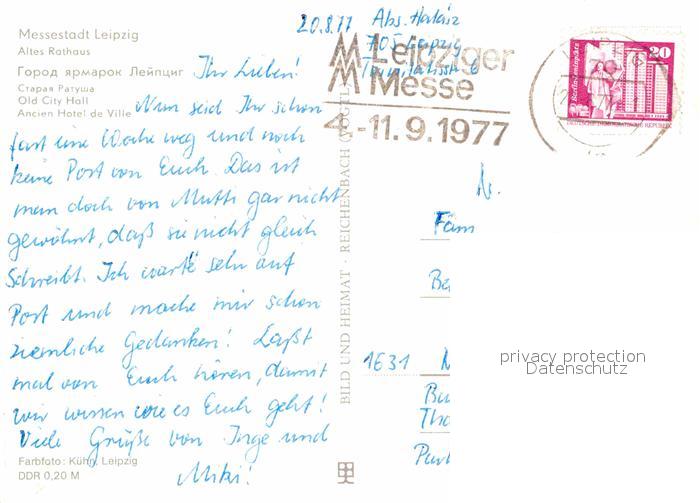 Messestadt Leipzig
Altes Rathaus
Город ярмарок Лейпциг
Старая Ратуша
Old City Hall
Ancien Hotel de Ville
20.8.77
Abs.
705 Leipzig
Ihr Lieben!
Nun seid Ihr schon
fast eine Woche weg und noch
keine Post von Euch. Das ist
man doch von Mutti gar nicht
gewöhnt, daß sie nicht gleich
schreibt. Ich warte sehr auf
Post und mache mir schon
ziemliche Gedanken! Laßt
mal von Euch hören, damit
wir wissen wie es Euch geht!
Viele Grüße von Inge und
Miki!
Farbfoto: Kühn, Leipzig
DDR 0,20 M
BILD UND HEIMAT · REICHENBACH (VOGTL
MM Leipziger
Messe
4.-11.9.1977
20
DEUTSCHE DEMOKRATISCHE REPUBLIK
Fam
Be
1631
Bu
Tho
privacy protection
Datenschutz